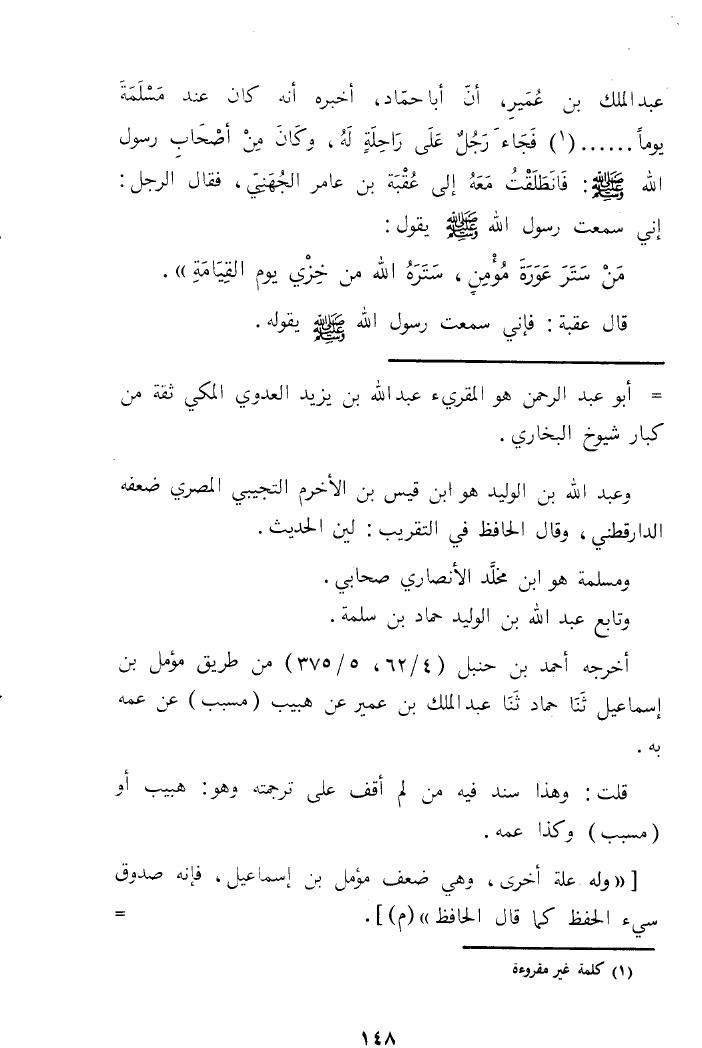 عبدالملك بن عُمَيرٍ، أنّ أبا حمّاد، أخبره أنه كان عند مَسْلَمَةَ
يوماً ......(١) فَجَاءَ رَجُلٌ عَلَى رَاحِلَةٍ لَهُ، وكَانَ مِنْ أصْحَابِ رسول
الله ﷺ: فَانَطَلَقْتُ مَعَهُ إلى عُقْبَة بن عامر الجُهَنيّ، فقال الرجل:
إني سمعت رسول الله ﷺ يقول:
مَنْ سَتَرَ عَوَرَةَ مُؤْمنٍ، سَتَرَهُ الله من خِزْي يوم القِيَامَةِ».
قال عقبة: فإني سمعت رسول الله ﷺ يقوله.
= أبو عبد الرحمن هو المقريء عبدالله بن يزيد العدوي المكي ثقة من
كبار شيوخ البخاري.
وعبد الله بن الوليد هو ابن قيس بن الأخرم التجيبي المصري ضعفه
الدارقطني، وقال الحافظ في التقريب: لين الحديث.
ومسلمة هو ابن مخلَّد الأنصاري صحابي.
وتابع عبد الله بن الوليد حماد بن سلمة.
أخرجه أحمد بن حنبل (٦٢/٤، ٣٧٥/٥) من طريق مؤمل بن
إسماعيل ثَنَا حماد ثَنَا عبدالملك بن عمير عن هبيب (مسبب) عن عمه
به.
قلت: وهذا سند فيه من لم أقف على ترجمته وهو: هبيب أو
(مسبب) وكذا عمه.
[«وله علة أخرى، وهي ضعف مؤمل بن إسماعيل، فإنه صدوق
سيء الحفظ كما قال الحافظ»(م)]. =
(١) كلمة غير مقروءة
١٤٨